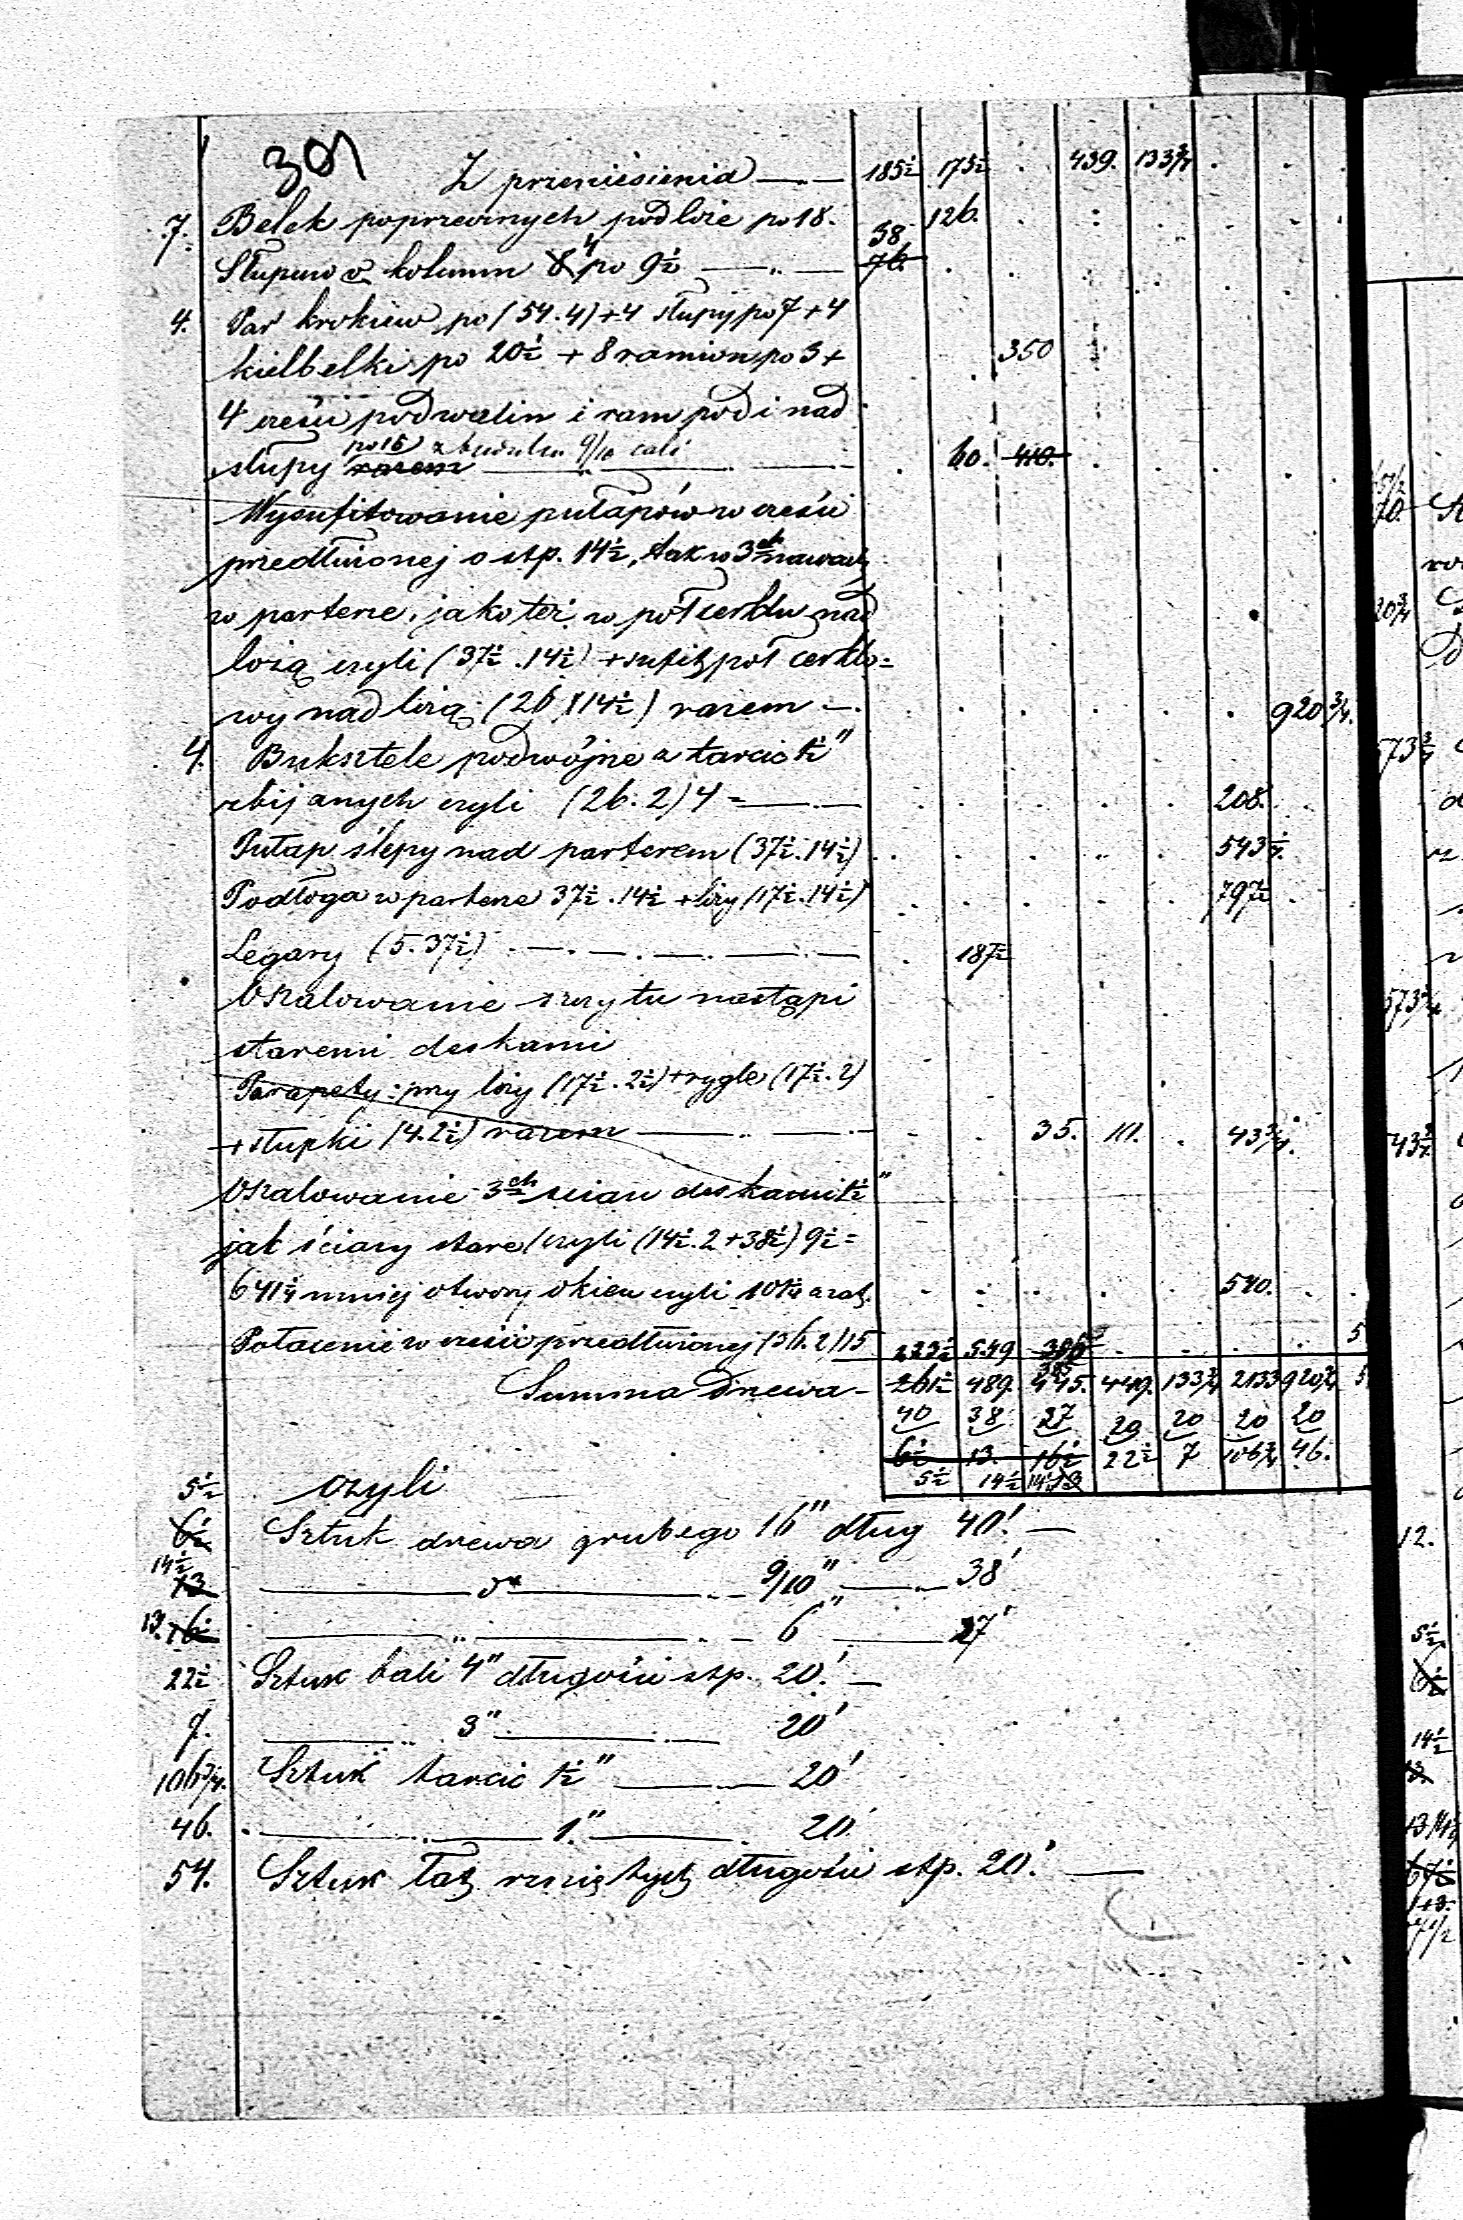 301
Z przeniesienia — 185½ 173½ . 439. 133¾ . . .
7. Belek poprzecznych pod loże po 18. 126.
Słupów v. kolumn 8 4 po 9½ — 38 76.
4. Par krokiew po (54.4) + 4 słupy po 7 + 4
kielbelki po 20½ + 8 ramion po 3 + 350
4 części podwalin i ram pod i nad
słupy razem po 15 z budulcu 9/10 cali — 60. 410.
Wysufitowanie pułapów w części
przedłużonej o stp. 14½, tak w 3ch nawach
w parterze, jako też w półcerklu nad
lożą czyli (37½ . 14½) + sufit pół cerklo=
wy nad lożą (26 . 14½) razem — 920¾.
4. Buksztele podwójne z tarcic 1½"
zbijanych czyli (26.2) 4 = — 208.
Pułap ślepy nad parterem (37½ . 14½) 543¾.
Podłoga w parterze 37½ . 14½ + loży (17½ . 14½) 797½
Legary (5.37½) — 187½
Oszalowanie szczytu nastąpi
staremi deskami
Parapety: przy loży (17½ . 2½) + rygle (17½ . 2)
+ słupki (4.2½) razem — 35. 10. . 43¾.
Oszalowanie 3ch ścian deskami 1½"
jak ściany stare czyli (14½ . 2 + 38½) 9½ =
641¼ mniej otwory okien czyli 101¼ a zat. 540.
Połacenie w części przedłużonej (36.2) 15 223½ 549 386 5
Summa Drzewa — 261½ 489. 445. 385 449. 133¾ 2133 920¾ 5
40 38 27 20 20 20 20
6½ 13. 16½ 22½ 7 106¾ 46.
5½ 14½ 14½ 13
czyli
5½ 6½ Sztuk drzewa grubego 16" dług 40'. —
14½ 13 — dto — 9/10" — 38'
13. 16½ — „ — 6" — 27'
22½ Sztuk bali 4" długości stp. 20'. —
7. — „ 3" — 20'
106¾. Sztuk tarcic 1½" — 20'
46. — 1." — 20'
54. Sztuk łat rzniętych długości stp. 20.' —
573¾
573¾
43¾
12.
5½
6½
14½
13.